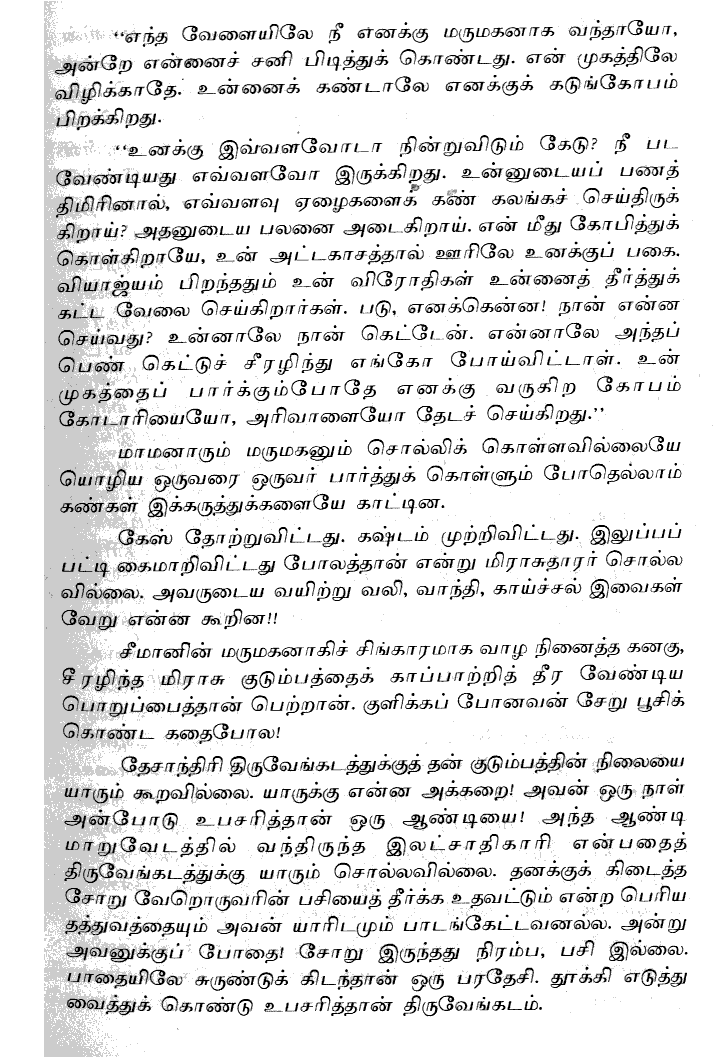 “எந்த வேளையிலே நீ எனக்கு மருமகனாக வந்தாயோ,
அன்றே என்னைச் சனி பிடித்துக் கொண்டது. என் முகத்திலே
விழிக்காதே. உன்னைக் கண்டாலே எனக்குக் கடுங்கோபம்
பிறக்கிறது.
“உனக்கு இவ்வளவோடா நின்றுவிடும் கேடு? நீ பட
வேண்டியது எவ்வளவோ இருக்கிறது. உன்னுடையப் பணத்
திமிரினால், எவ்வளவு ஏழைகளைக் கண் கலங்கச் செய்திருக்
கிறாய்? அதனுடைய பலனை அடைகிறாய். என் மீது கோபித்துக்
கொள்கிறாயே, உன் அட்டகாசத்தால் ஊரிலே உனக்குப் பகை.
வியாஜ்யம் பிறந்ததும் உன் விரோதிகள் உன்னைத் தீர்த்துக்
கட்ட வேலை செய்கிறார்கள். படு, எனக்கென்ன! நான் என்ன
செய்வது? உன்னாலே நான் கெட்டேன். என்னாலே அந்தப்
பெண் கெட்டுச் சீரழிந்து எங்கோ போய்விட்டாள். உன்
முகத்தைப் பார்க்கும்போதே எனக்கு வருகிற கோபம்
கோடாரியையோ, அரிவாளையோ தேடச் செய்கிறது.”
மாமனாரும் மருமகனும் சொல்லிக் கொள்ளவில்லையே
யொழிய ஒருவரை ஒருவர் பார்த்துக் கொள்ளும் போதெல்லாம்
கண்கள் இக்கருத்துக்களையே காட்டின.
கேஸ் தோற்றுவிட்டது. கஷ்டம் முற்றிவிட்டது. இலுப்பப்
பட்டி கைமாறிவிட்டது போலத்தான் என்று மிராசுதாரர் சொல்ல
வில்லை. அவருடைய வயிற்று வலி, வாந்தி, காய்ச்சல் இவைகள்
வேறு என்ன கூறின!!
சீமானின் மருமகனாகிச் சிங்காரமாக வாழ நினைத்த கனகு,
சீரழிந்த மிராசு குடும்பத்தைக் காப்பாற்றித் தீர வேண்டிய
பொறுப்பைத்தான் பெற்றான். குளிக்கப் போனவன் சேறு பூசிக்
கொண்ட கதைபோல!
தேசாந்திரி திருவேங்கடத்துக்குத் தன் குடும்பத்தின் நிலையை
யாரும் கூறவில்லை. யாருக்கு என்ன அக்கறை! அவன் ஒரு நாள்
அன்போடு உபசரித்தான் ஒரு ஆண்டியை! அந்த ஆண்டி
மாறுவேடத்தில் வந்திருந்த இலட்சாதிகாரி என்பதைத்
திருவேங்கடத்துக்கு யாரும் சொல்லவில்லை. தனக்குக் கிடைத்த
சோறு வேறொருவரின் பசியைத் தீர்க்க உதவட்டும் என்ற பெரிய
தத்துவத்தையும் அவன் யாரிடமும் பாடங்கேட்டவனல்ல. அன்று
அவனுக்குப் போதை! சோறு இருந்தது நிரம்ப, பசி இல்லை.
பாதையிலே சுருண்டுக் கிடந்தான் ஒரு பரதேசி. தூக்கி எடுத்து
வைத்துக் கொண்டு உபசரித்தான் திருவேங்கடம்.